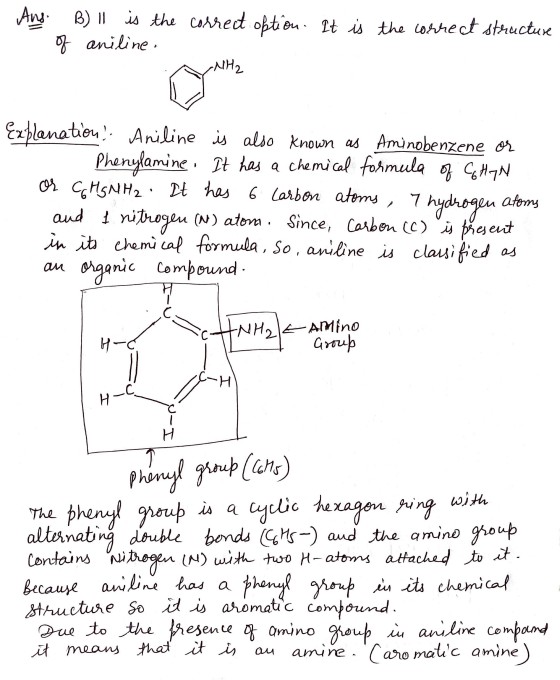 Ans. B) II is the correct option. It is the correct structure
of aniline.
NH2
Explanation:- Aniline is also known as Aminobenzene or
Phenylamine. It has a chemical formula of C6H7N
or C6H5NH2. It has 6 Carbon atoms, 7 hydrogen atoms
and 1 nitrogen (N) atom. Since, Carbon (C) is present
in its chemical formula, So, aniline is classified as
an organic compound.
H
C
H-C C-NH2 ← Amino
Group
H-C C-H
C
H
phenyl group (C6H5)
The phenyl group is a cyclic hexagon ring with
alternating double bonds (C6H5-) and the amino group
Contains Nitrogen (N) with two H-atoms attached to it.
Because aniline has a phenyl group in its chemical
structure So it is aromatic compound.
Due to the presence of amino group in aniline compand
it means that it is an amine. (aromatic amine)